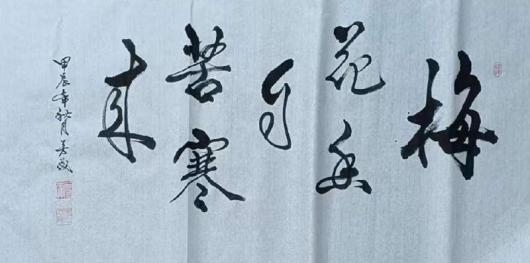 梅
花香
自
苦寒
来
甲辰年秋月吴敏